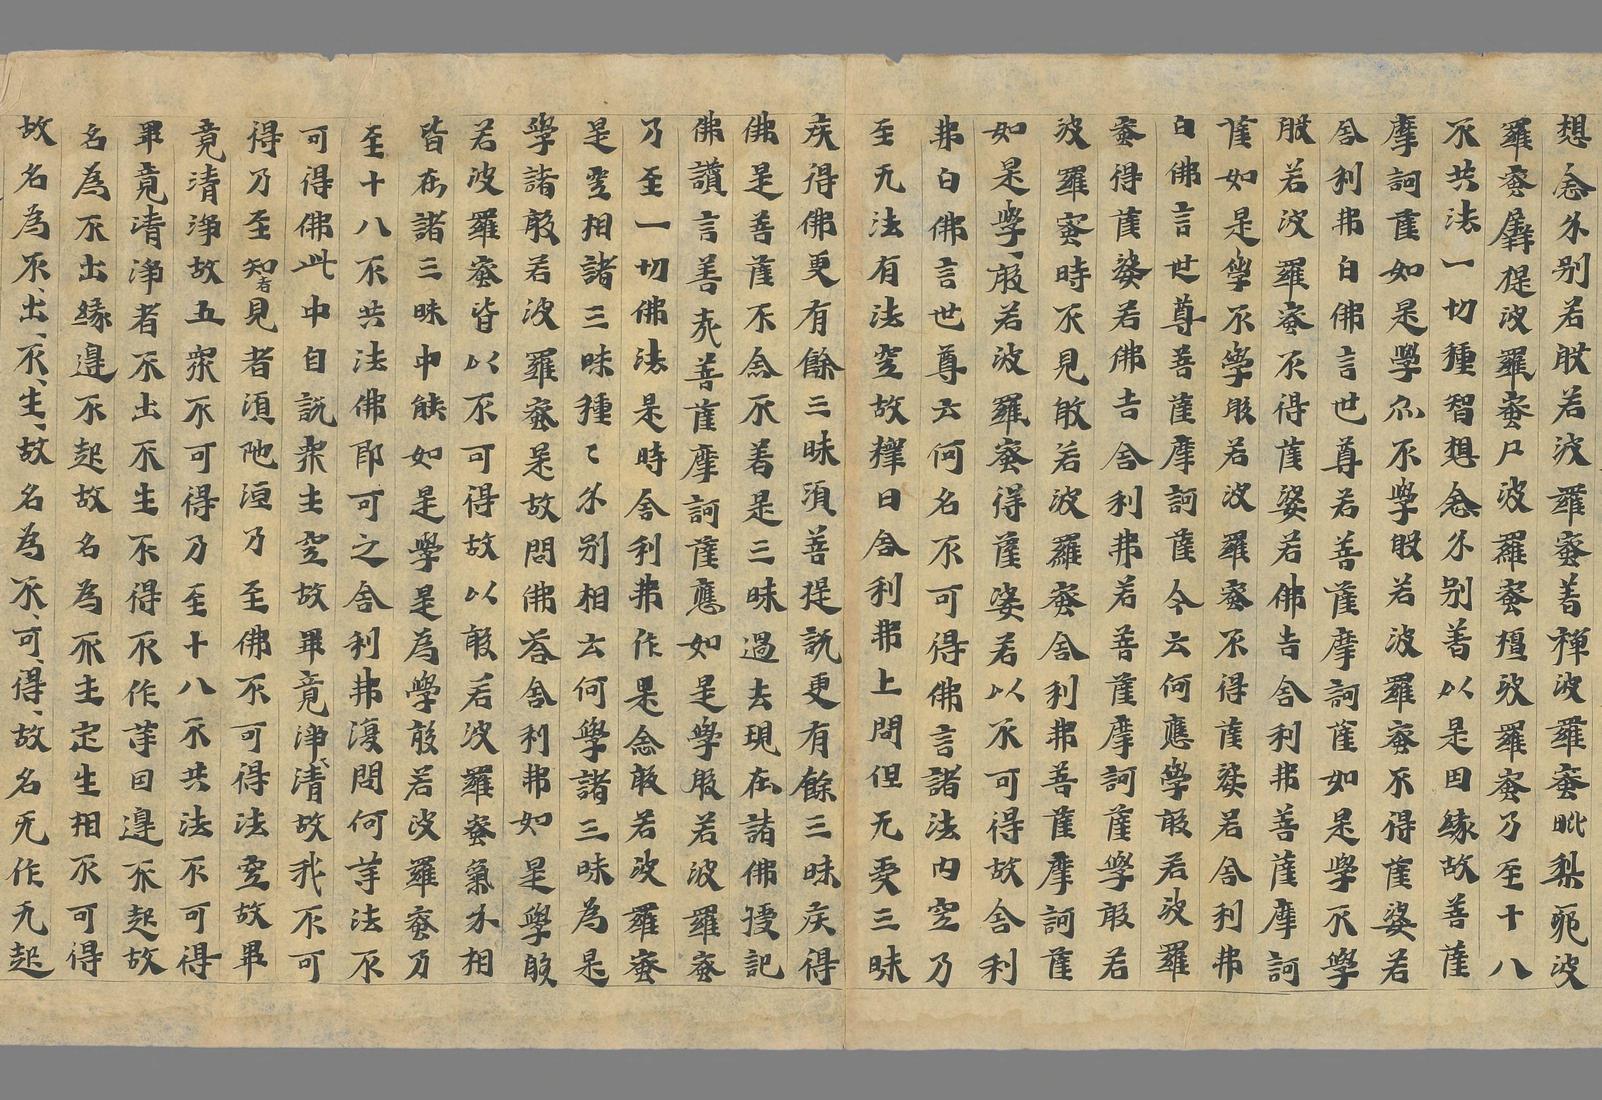 想念分别若般若波羅蜜善禪波羅蜜毗梨耶波
羅蜜羼提波羅蜜尸波羅蜜檀波羅蜜乃至十八
不共法一切種智想念分别善以是因緣故菩薩
摩訶薩如是學亦不學般若波羅蜜不得薩婆若
舍利弗白佛言世尊若菩薩摩訶薩如是學不學
般若波羅蜜不得薩婆若佛告舍利弗菩薩摩訶
薩如是學不學般若波羅蜜不得薩婆若舍利弗
白佛言世尊菩薩摩訶薩今云何應學般若波羅
蜜得薩婆若佛告舍利弗若菩薩摩訶薩學般若
波羅蜜時不見般若波羅蜜舍利弗菩薩摩訶薩
如是學般若波羅蜜得薩婆若以不可得故舍利
弗白佛言世尊云何名不可得佛言諸法内空乃
至无法有法空故釋曰舍利弗上問但无受三昧
疾得佛更有餘三昧須菩提説更有餘三昧疾得
佛是菩薩不念不善是三昧過去現在諸佛授記
佛讚言善哉善薩摩訶薩應如是學般若波羅蜜
乃至一切佛法是時舍利弗作是念般若波羅蜜
是空相諸三昧種〻分别相云何學諸三昧為是
學諸般若波羅蜜是故問佛荅舍利弗如是學般
若波羅蜜皆以不可得故以般若波羅蜜氣分相
皆在諸三昧中能如是學是為學般若波羅蜜乃
至十八不共法佛耶可之舍利弗復問何䓁法不
可得佛此中自説衆生空故畢竟淨清故我不可
得乃至知者見者須陁洹乃至佛不可得法空故畢
竟清淨故五衆不可得乃至十八不共法不可得
畢竟清淨者不出不生不得不作䓁因邉不起故
名為不出緣邉不起故名為不生定生相不可得
故名為不出不生故名為不可得故名无作无起